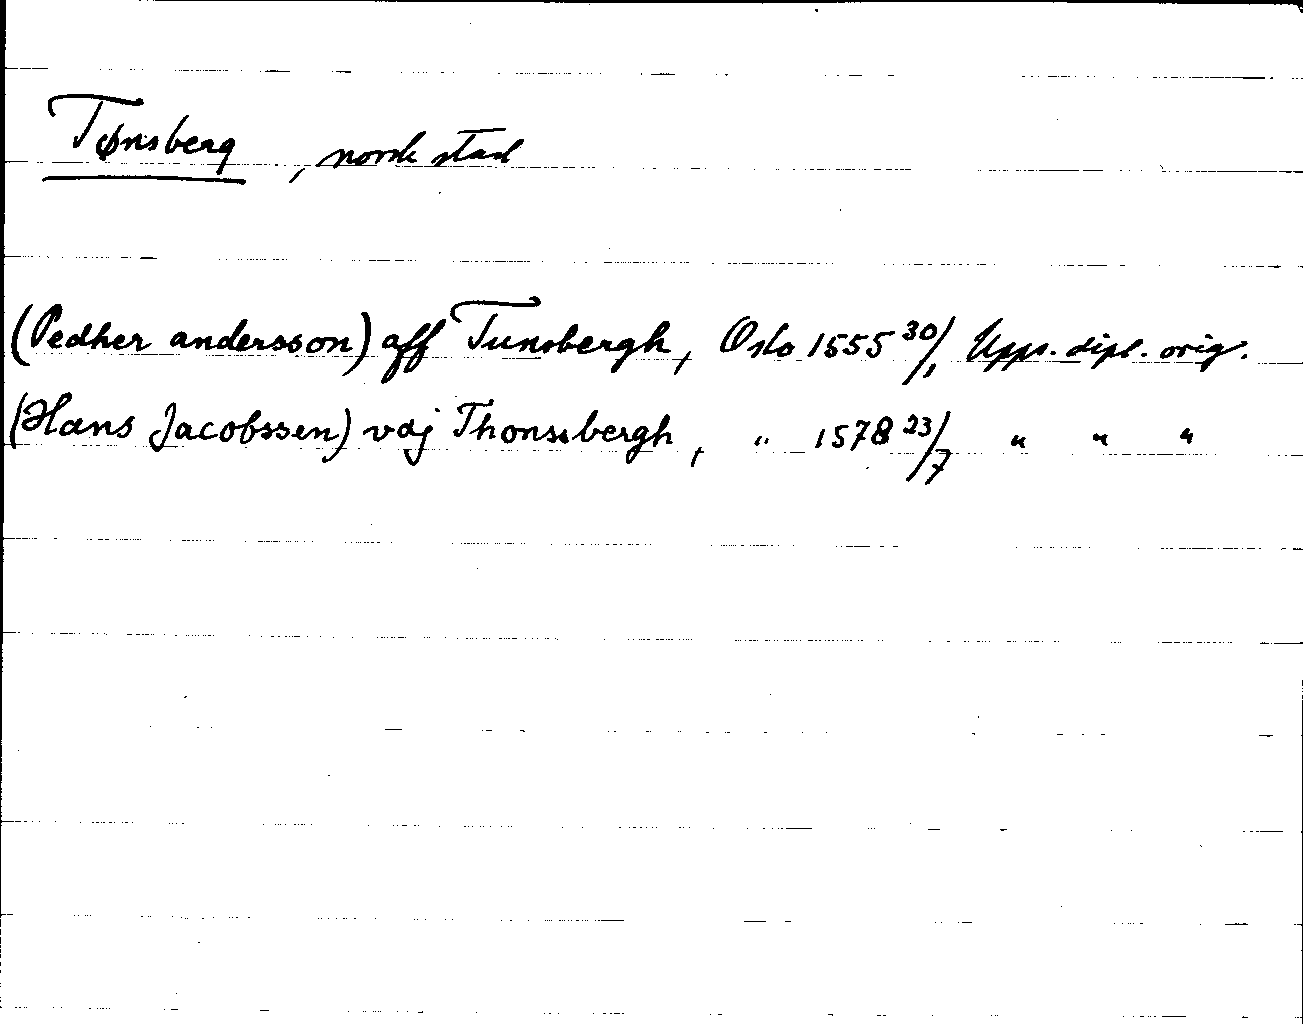 Tønsberg, norsk stad
(Pedher andersson) aff Tunsbergh, Oslo 1555 30/1, Upps. dipl. orig.
(Hans Jacobssen) vdj Thonssbergh, " 1578 23/7 " " "